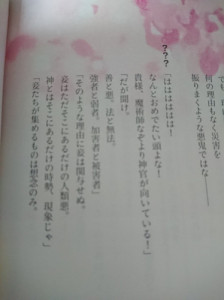 でも、
何の理由もなく災害を
振りまくような悪鬼ではな———
？？？
「はははははは！
なんとおめでたい頭よな！
貴様、魔術師なぞより神官が向いている！」
「だが聞け。
善と悪。法と無法。
強者と弱者。加害者と被害者」
「そのような理由に妾は関与せぬ。
妾はただそこにあるだけの人類悪。
神とはそこにあるだけの時勢、現象じゃ」
「妾たちが集めるものは想念のみ。